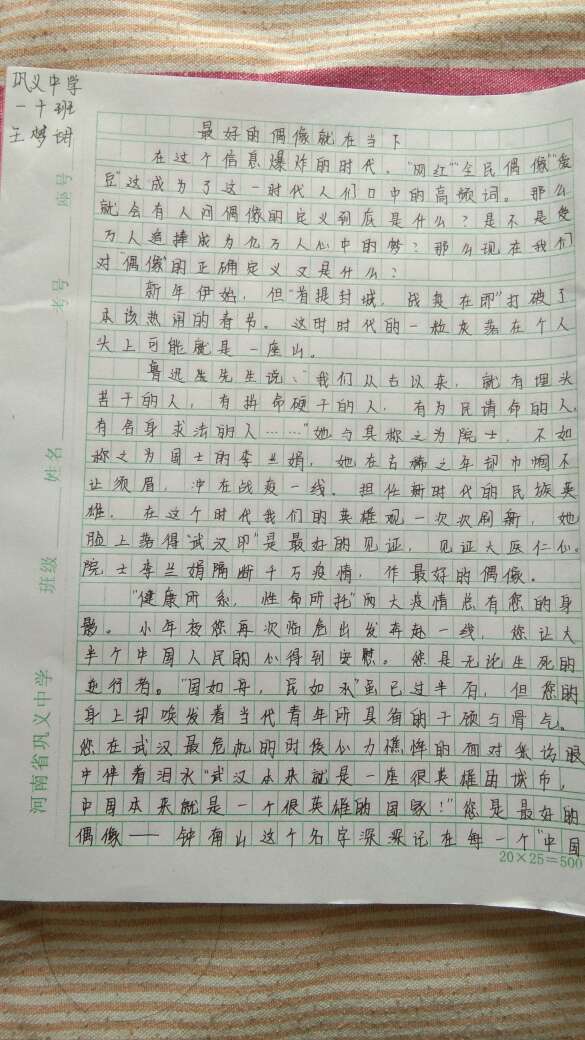 巩义中学
一十班
王梦
最好的偶像就在当下
在这个信息爆炸的时代，"网红""全民偶像""爱
豆"这成为了这一时代人们口中的高频词。那么
就会有人问偶像的定义到底是什么？是不是受
万人追捧成为亿万人心中的梦？那么现在我们
对"偶像"的正确定义又是什么？
新年伊始，但"首提封城，战疫在即"打破了
本该热闹的春节。这时时代的一粒灰落在个人
头上可能就是一座山。
鲁迅先生说："我们从古以来，就有埋头
苦干的人，有拚命硬干的人，有为民请命的人，
有舍身求法的人……"她与其称之为院士，不如
称之为国士的李兰娟，她在古稀之年却巾帼不
让须眉，冲在战疫一线。担任新时代的民族英
雄，在这个时代我们的英雄观一次次刷新，她
脸上落得"武汉印"是最好的见证，见证大医仁心。
院士李兰娟隔断千万疫情，作最好的偶像。
"健康所系，性命所托"两大疫情总有您的身
影。小年夜您再次临危出发奔赴一线，您让大
半个中国人民的心得到安慰。您是无论生死的
逆行者。"国如母，民如水"虽已过半百，但您的
身上却唤发着当代青年所具有的干硕与骨气。
您在武汉最危机的时候心力憔悴的面对采访眼
中伴着泪水"武汉本来就是一座很英雄的城市，
中国本来就是一个很英雄的国家！"您是最好的
偶像——钟南山这个名字深深记在每一个"中国
20×25=500
河南省巩义中学
班级
姓名
考号
座号